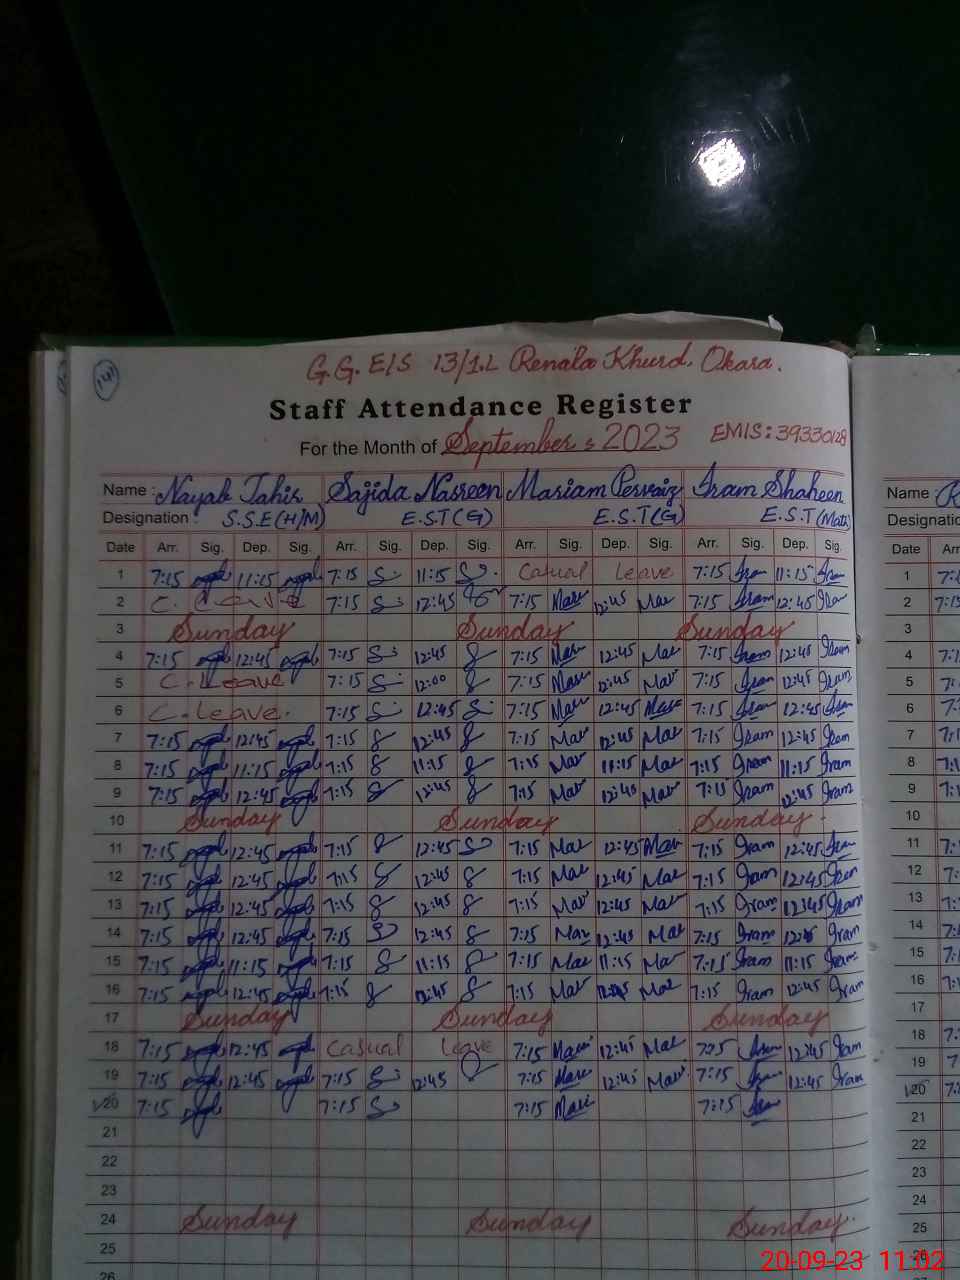 141
G.G.E/S 13/1.L Renala Khurd. Okara.
Staff Attendance Register
For the Month of September : 2023 EMIS: 39330128
Name : Nayab Tahir Sajida Nasreen Mariam Pervaiz Iram Shaheen Name :
Designation : S.S.E (H/M) E.S.T (G) E.S.T (G) E.S.T (Math)
Date Arr. Sig. Dep. Sig. Arr. Sig. Dep. Sig. Arr. Sig. Dep. Sig. Arr. Sig. Dep. Sig. Date
1 7:15 11:15 7:15 11:15 Casual Leave 7:15 Iram 11:15 Iram 1
2 C. Leave 7:15 12:45 7:15 Mar 12:45 Mar 7:15 Iram 12:45 Iram 2
3 Sunday Sunday Sunday 3
4 7:15 12:45 7:15 12:45 7:15 Mar 12:45 Mar 7:15 Iram 12:45 Iram 4
5 C. Leave 7:15 12:00 7:15 Mar 12:45 Mar 7:15 Iram 12:45 Iram 5
6 C. Leave. 7:15 12:45 7:15 Mar 12:45 Mar 7:15 Iram 12:45 Iram 6
7 7:15 12:45 7:15 12:45 7:15 Mar 12:45 Mar 7:15 Iram 12:45 Iram 7
8 7:15 11:15 7:15 11:15 7:15 Mar 11:15 Mar 7:15 Iram 11:15 Iram 8
9 7:15 12:45 7:15 12:45 7:15 Mar 12:45 Mar 7:15 Iram 12:45 Iram 9
10 Sunday Sunday Sunday 10
11 7:15 12:45 7:15 12:45 7:15 Mar 12:45 Mar 7:15 Iram 12:45 Iram 11
12 7:15 12:45 7:15 12:45 7:15 Mar 12:45 Mar 7:15 Iram 12:45 Iram 12
13 7:15 12:45 7:15 12:45 7:15 Mar 12:45 Mar 7:15 Iram 12:45 Iram 13
14 7:15 12:45 7:15 12:45 7:15 Mar 12:45 Mar 7:15 Iram 12:45 Iram 14
15 7:15 11:15 7:15 11:15 7:15 Mar 11:15 Mar 7:15 Iram 11:15 Iram 15
16 7:15 12:45 7:15 12:45 7:15 Mar 12:45 Mar 7:15 Iram 12:45 Iram 16
17 Sunday Sunday Sunday 17
18 7:15 12:45 Casual Leave 7:15 Mar 12:45 Mar 7:15 Iram 12:45 Iram 18
19 7:15 12:45 7:15 12:45 7:15 Mar 12:45 Mar 7:15 Iram 12:45 Iram 19
20 7:15 7:15 7:15 Mar 7:15 Iram 20
21 21
22 22
23 23
24 Sunday Sunday Sunday. 24
25 25
26 26
20-09-23 11:02